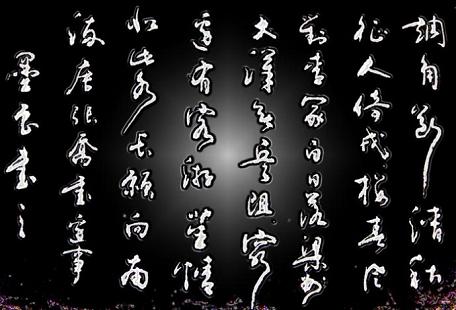 調角斷清秋
征人倚戍楼春风
對青冢白日落梁州
大漠无兵阻窮
邊有客游蕃情
似此水长愿向南
流唐张乔書邊事
墨書之